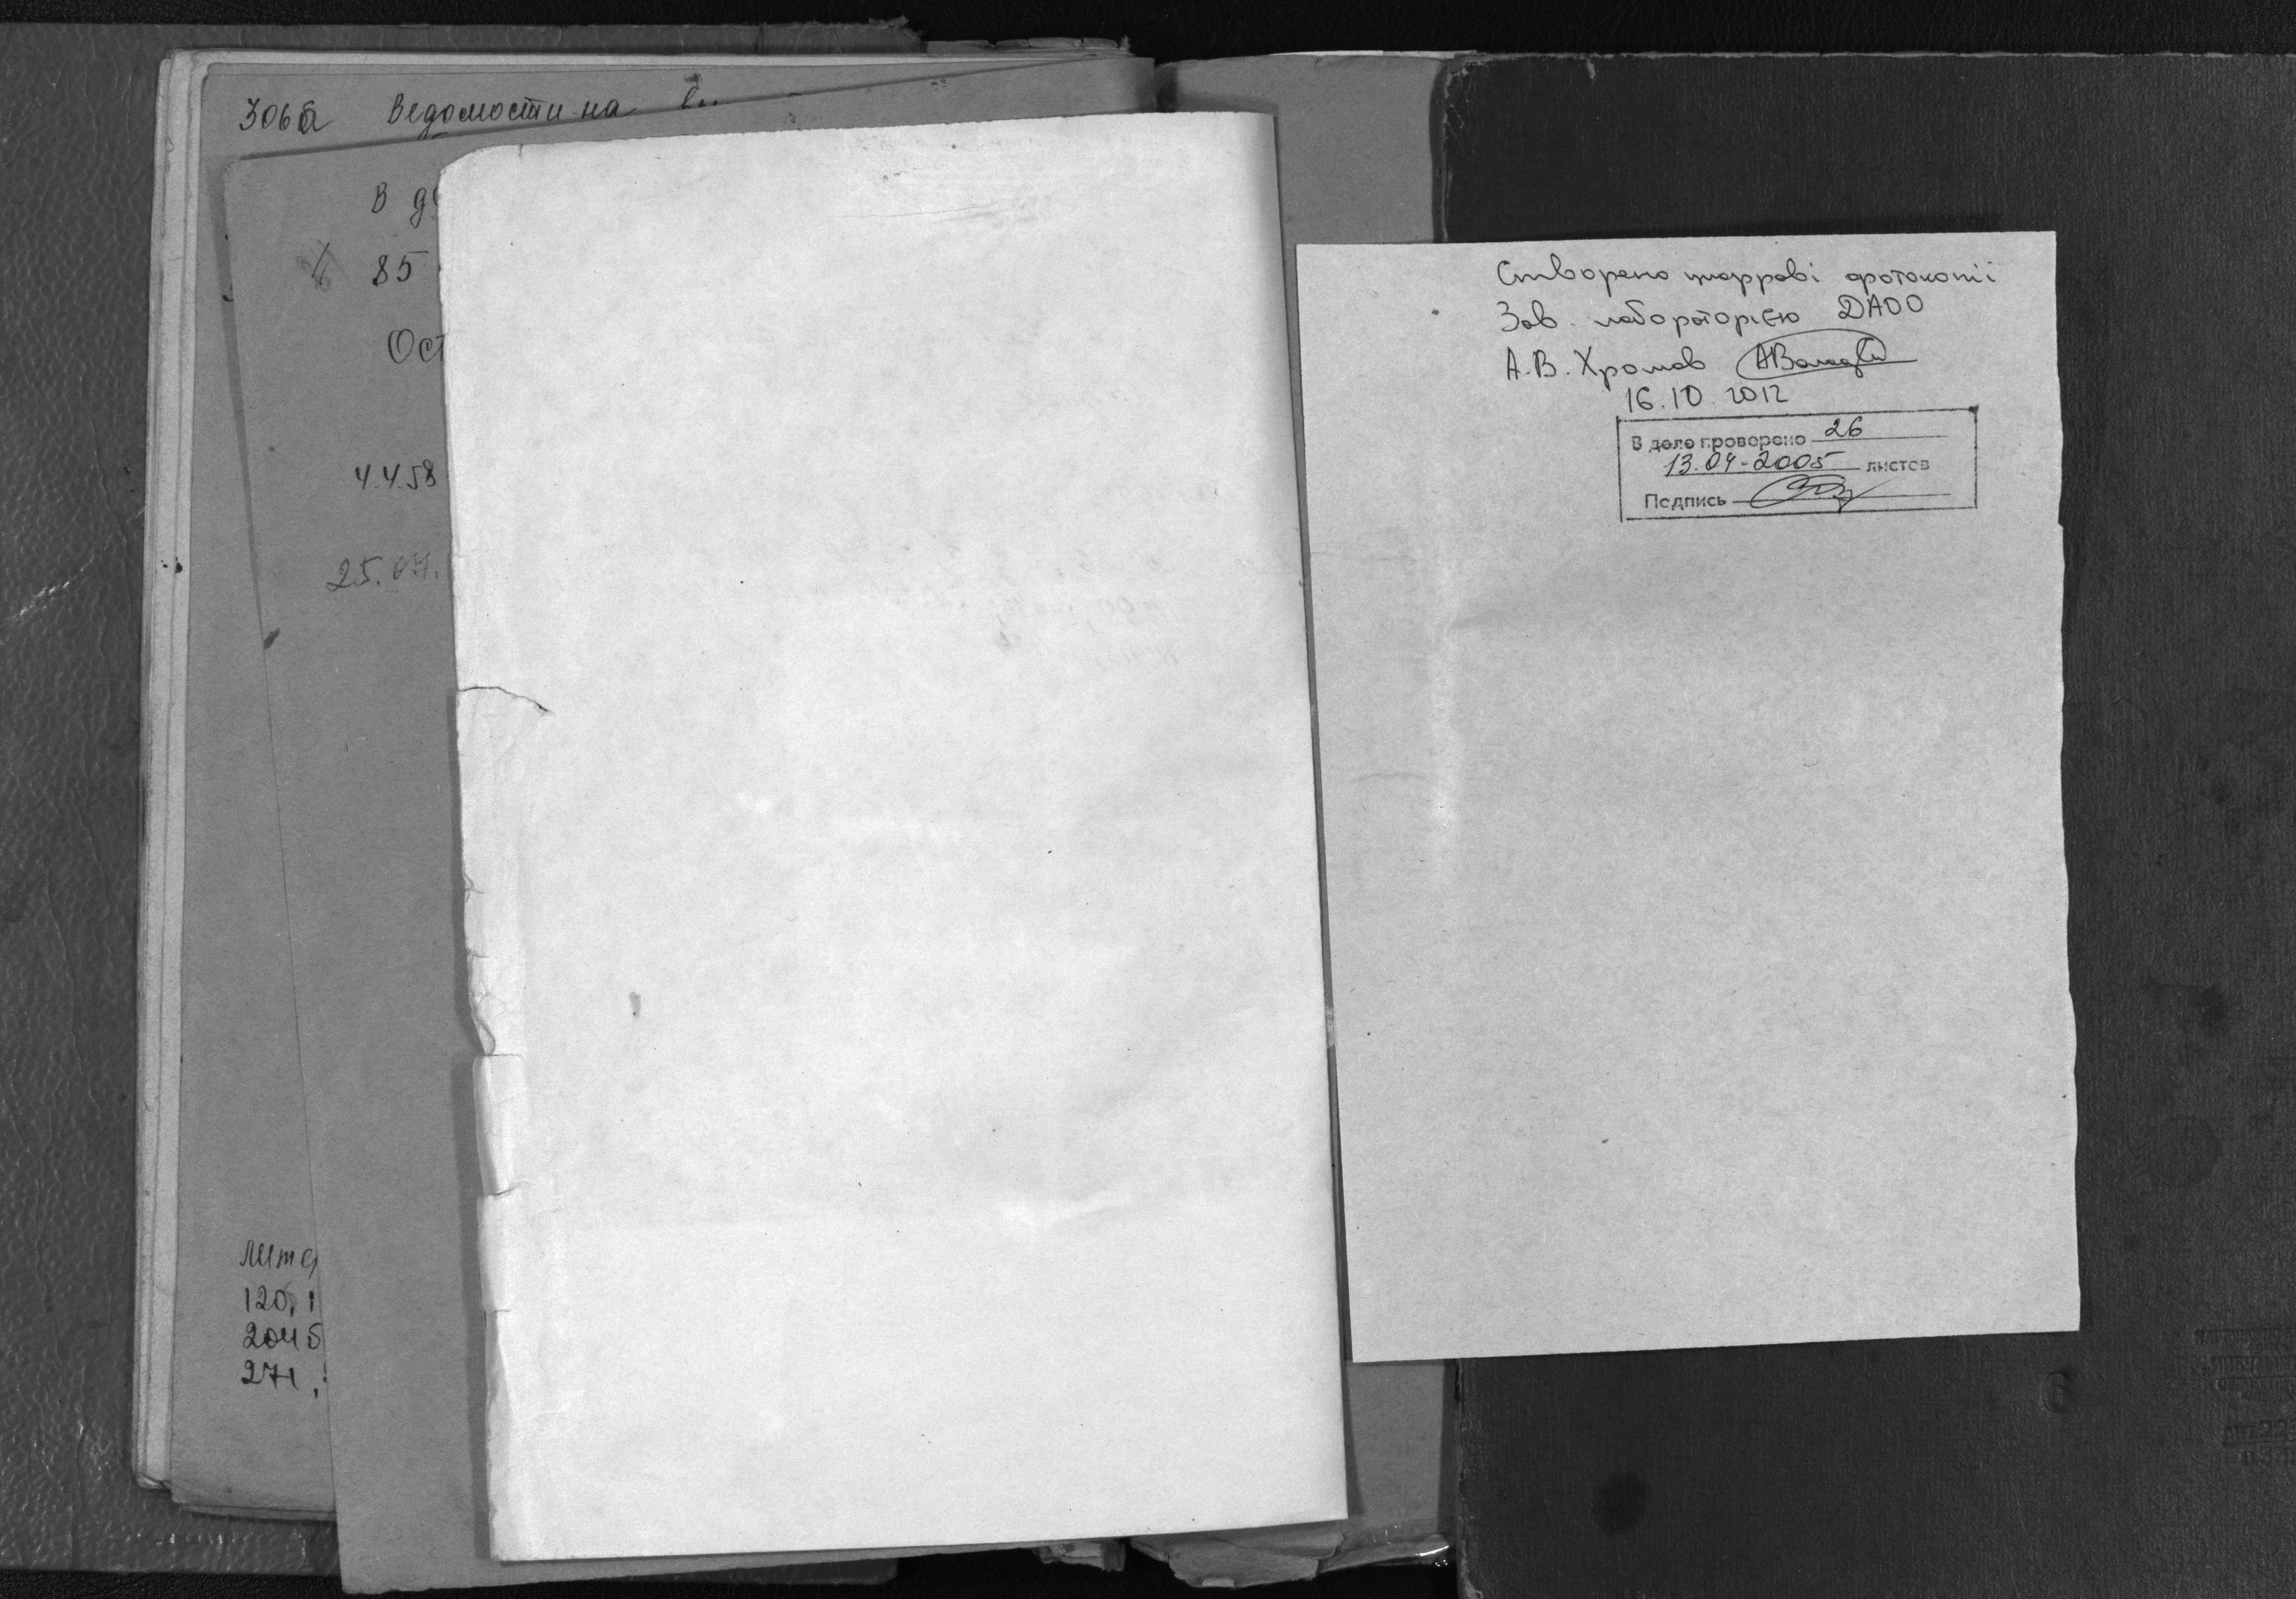 306а Ведомости на
В де
85
Ост
4.4.58
25.07.
Лите
120, 1
2045
271,
Створено цифрові фотокопії
Зав. лабораторією ДАОО
А.В. Хромов
16.10.2012
В деле проверено 26
13.04-2005 листов
Подпись